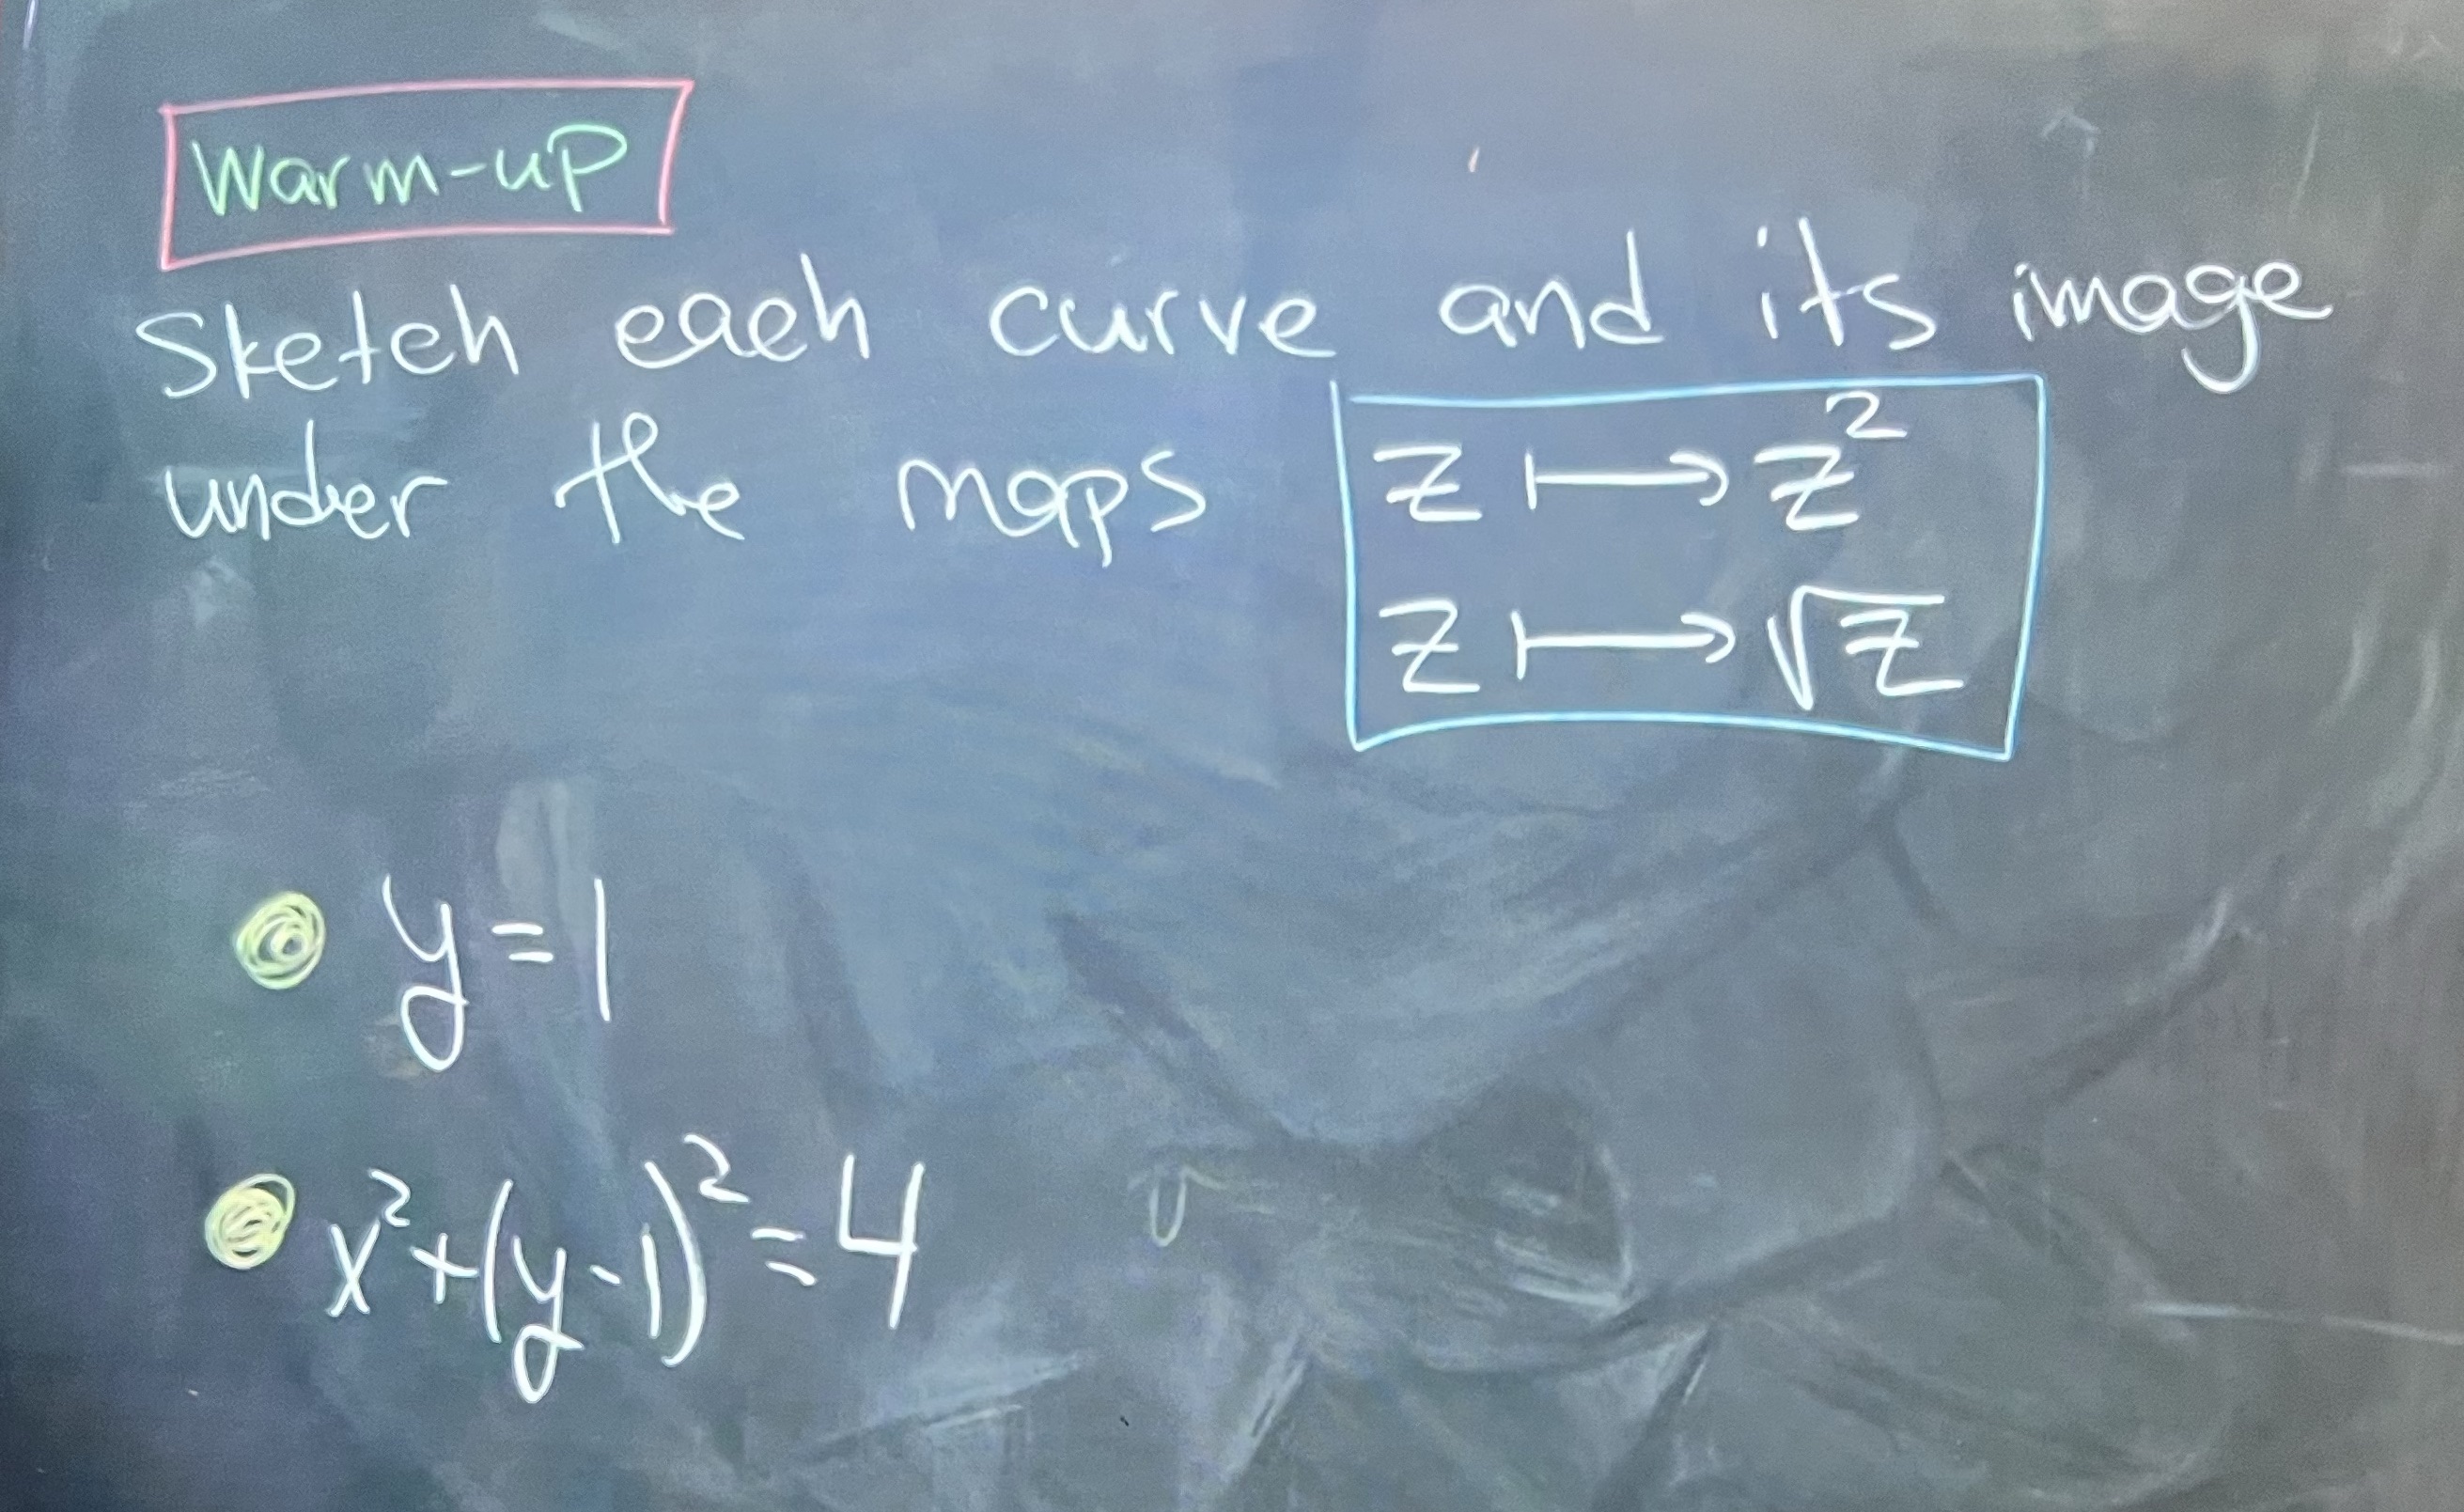 Warm-up
Sketch each curve and its image
under the maps
z ↦ z²
z ↦ √z
y = 1
x² + (y-1)² = 4